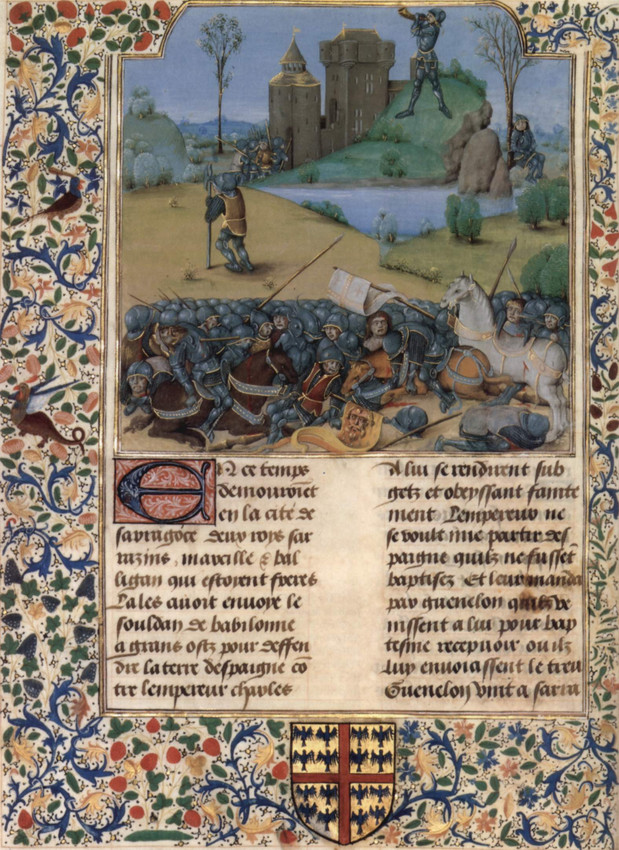 En ce temps
demouroiēt
en la cite de
sarragoce deux roys sar
razins, marcille & bal
ligan qui estoient freres
Lales auoit enuoye le
souldan de babilonne
a grans ostz pour deffen
dre la terre despaigne cō
tre lempereur charles
A lui se rendirent sub
getz et obeyssant fainte
ment Lempereur ne
se voult mie partir des
paigne quilz ne fussēt
baptisez Et leur manda
par guenelon quilz ve
nissent a lui pour bap
tesme recepuoir ou ilz
luy enuoiassent le treu
Guenelon vint a sarra